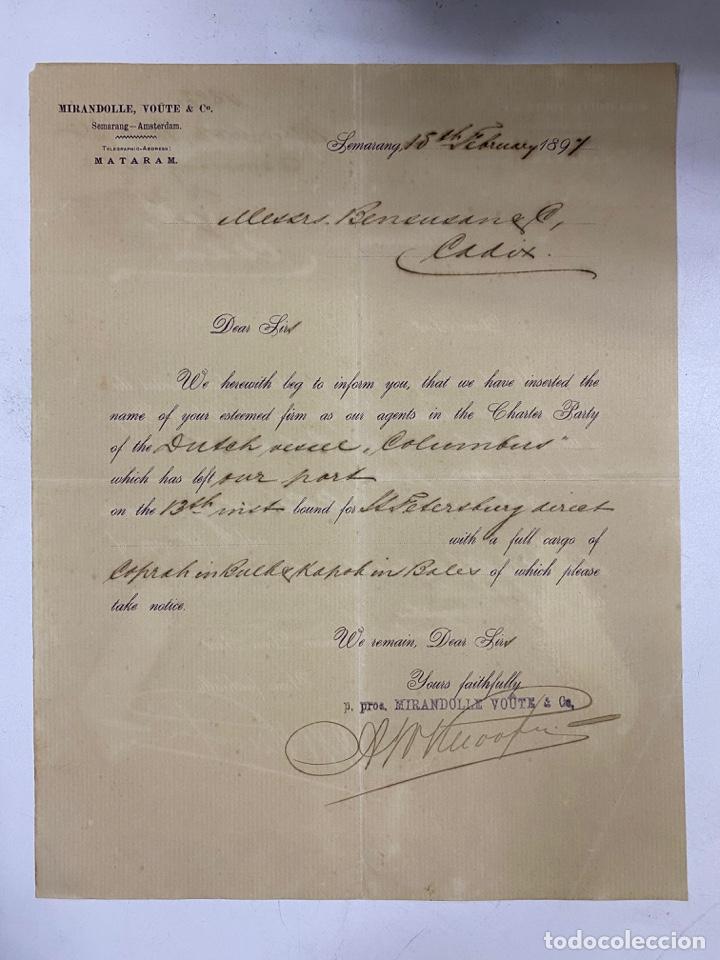 MIRANDOLLE, VOÛTE & Co.
Semarang—Amsterdam.
TELEGRAPHIC-ADDRESS:
MATARAM.
Semarang, 15th February 1897
Messrs. Bensusan & C,
Cadix.
Dear Sirs
We herewith beg to inform you, that we have inserted the
name of your esteemed firm as our agents in the Charter Party
of the Dutch vessel „Columbus"
which has left our port
on the 13th inst bound for St Petersburg direct
with a full cargo of
Coprah in Bulk & Kapok in Bales of which please
take notice.
We remain, Dear Sirs
Yours faithfully
p. pros. MIRANDOLLE VOÛTE & Co,
todocoleccion
todocoleccion.net